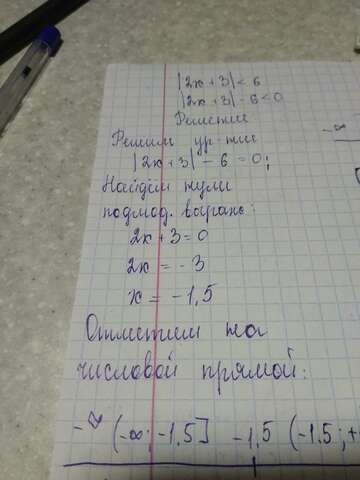 |2x + 3| < 6
|2x + 3| - 6 < 0
Решение
Решим ур-ние
-∞
|2x + 3| - 6 = 0;
Найдём нули
подмод. выраж:
2x + 3 = 0
2x = -3
x = -1,5
Отметим на
числовой прямой:
-∞ (-∞; -1,5] -1,5 (-1,5; +